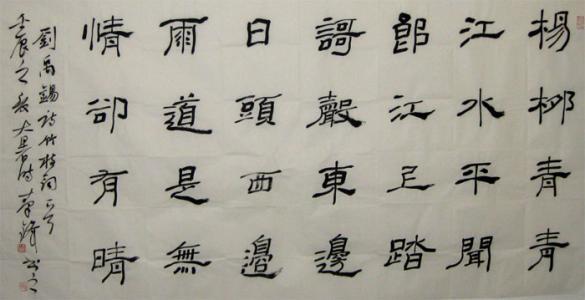 楊柳青青
江水平聞
郎江上踏
謌聲東邊
日頭西邊
雨道是無
情卻有晴
劉禹錫詩竹枝詞一首
壬辰之大暑時鋒書之